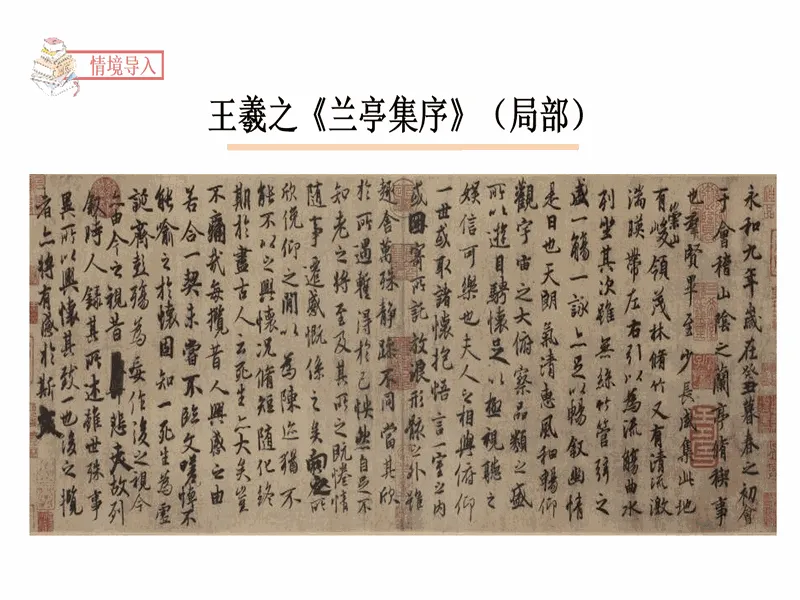 情境导入
王羲之《兰亭集序》（局部）
永和九年歲在癸丑暮春之初會
于會稽山陰之蘭亭脩稧事
也羣賢畢至少長咸集此地
有崇山峻領茂林脩竹又有清流激
湍暎帶左右引以為流觴曲水
列坐其次雖無絲竹管弦之
盛一觴一詠亦足以暢叙幽情
是日也天朗氣清惠風和暢仰
觀宇宙之大俯察品類之盛
所以遊目騁懷足以極視聽之
娛信可樂也夫人之相與俯仰
一世或取諸懷抱悟言一室之內
或因寄所託放浪形骸之外雖
趣舍萬殊靜躁不同當其欣
於所遇暫得於己怏然自足不
知老之將至及其所之既惓情
隨事遷感慨係之矣向之所
欣俛仰之間以為陳迹猶不
能不以之興懷況脩短隨化終
期於盡古人云死生亦大矣豈
不痛哉每攬昔人興感之由
若合一契未嘗不臨文嗟悼不
能喻之於懷固知一死生為虛
誕齊彭殤為妄作後之視今
亦由今之視昔悲夫故列
敘時人錄其所述雖世殊事
異所以興懷其致一也後之攬
者亦將有感於斯文